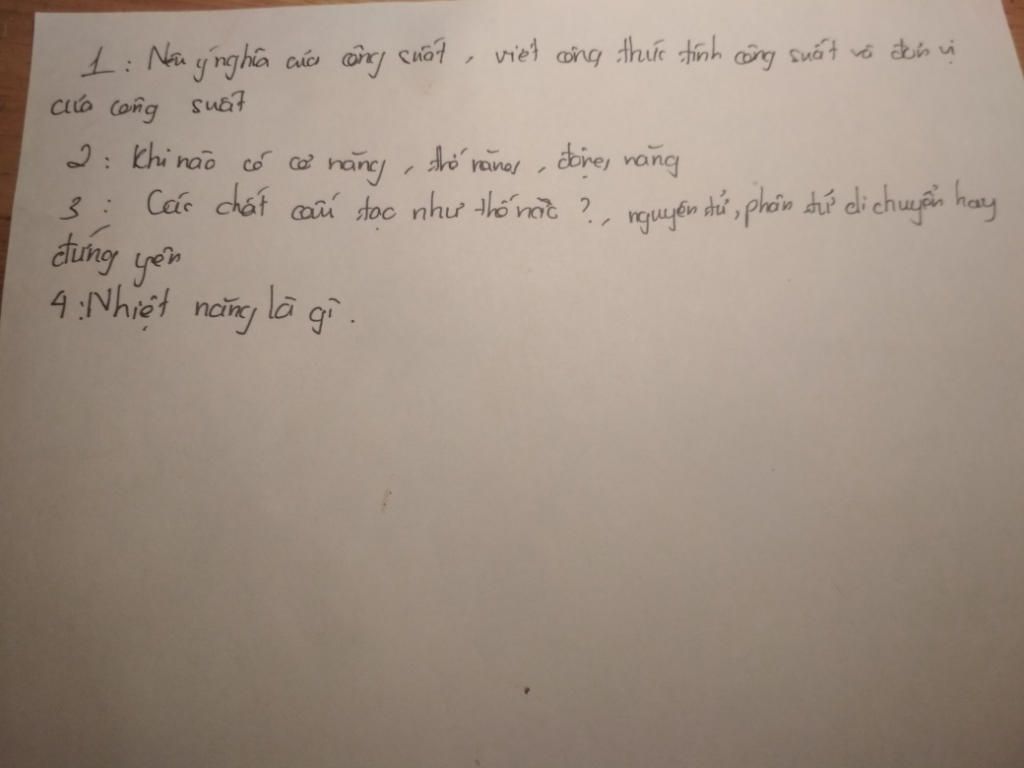 1: Nêu ý nghĩa của công suất, viết công thức tính công suất và đơn vị
của công suất
2: Khi nào có cơ năng, thế năng, động năng
3: Các chất cấu tạo như thế nào?, nguyên tử, phân tử di chuyển hay
đứng yên
4: Nhiệt năng là gì.